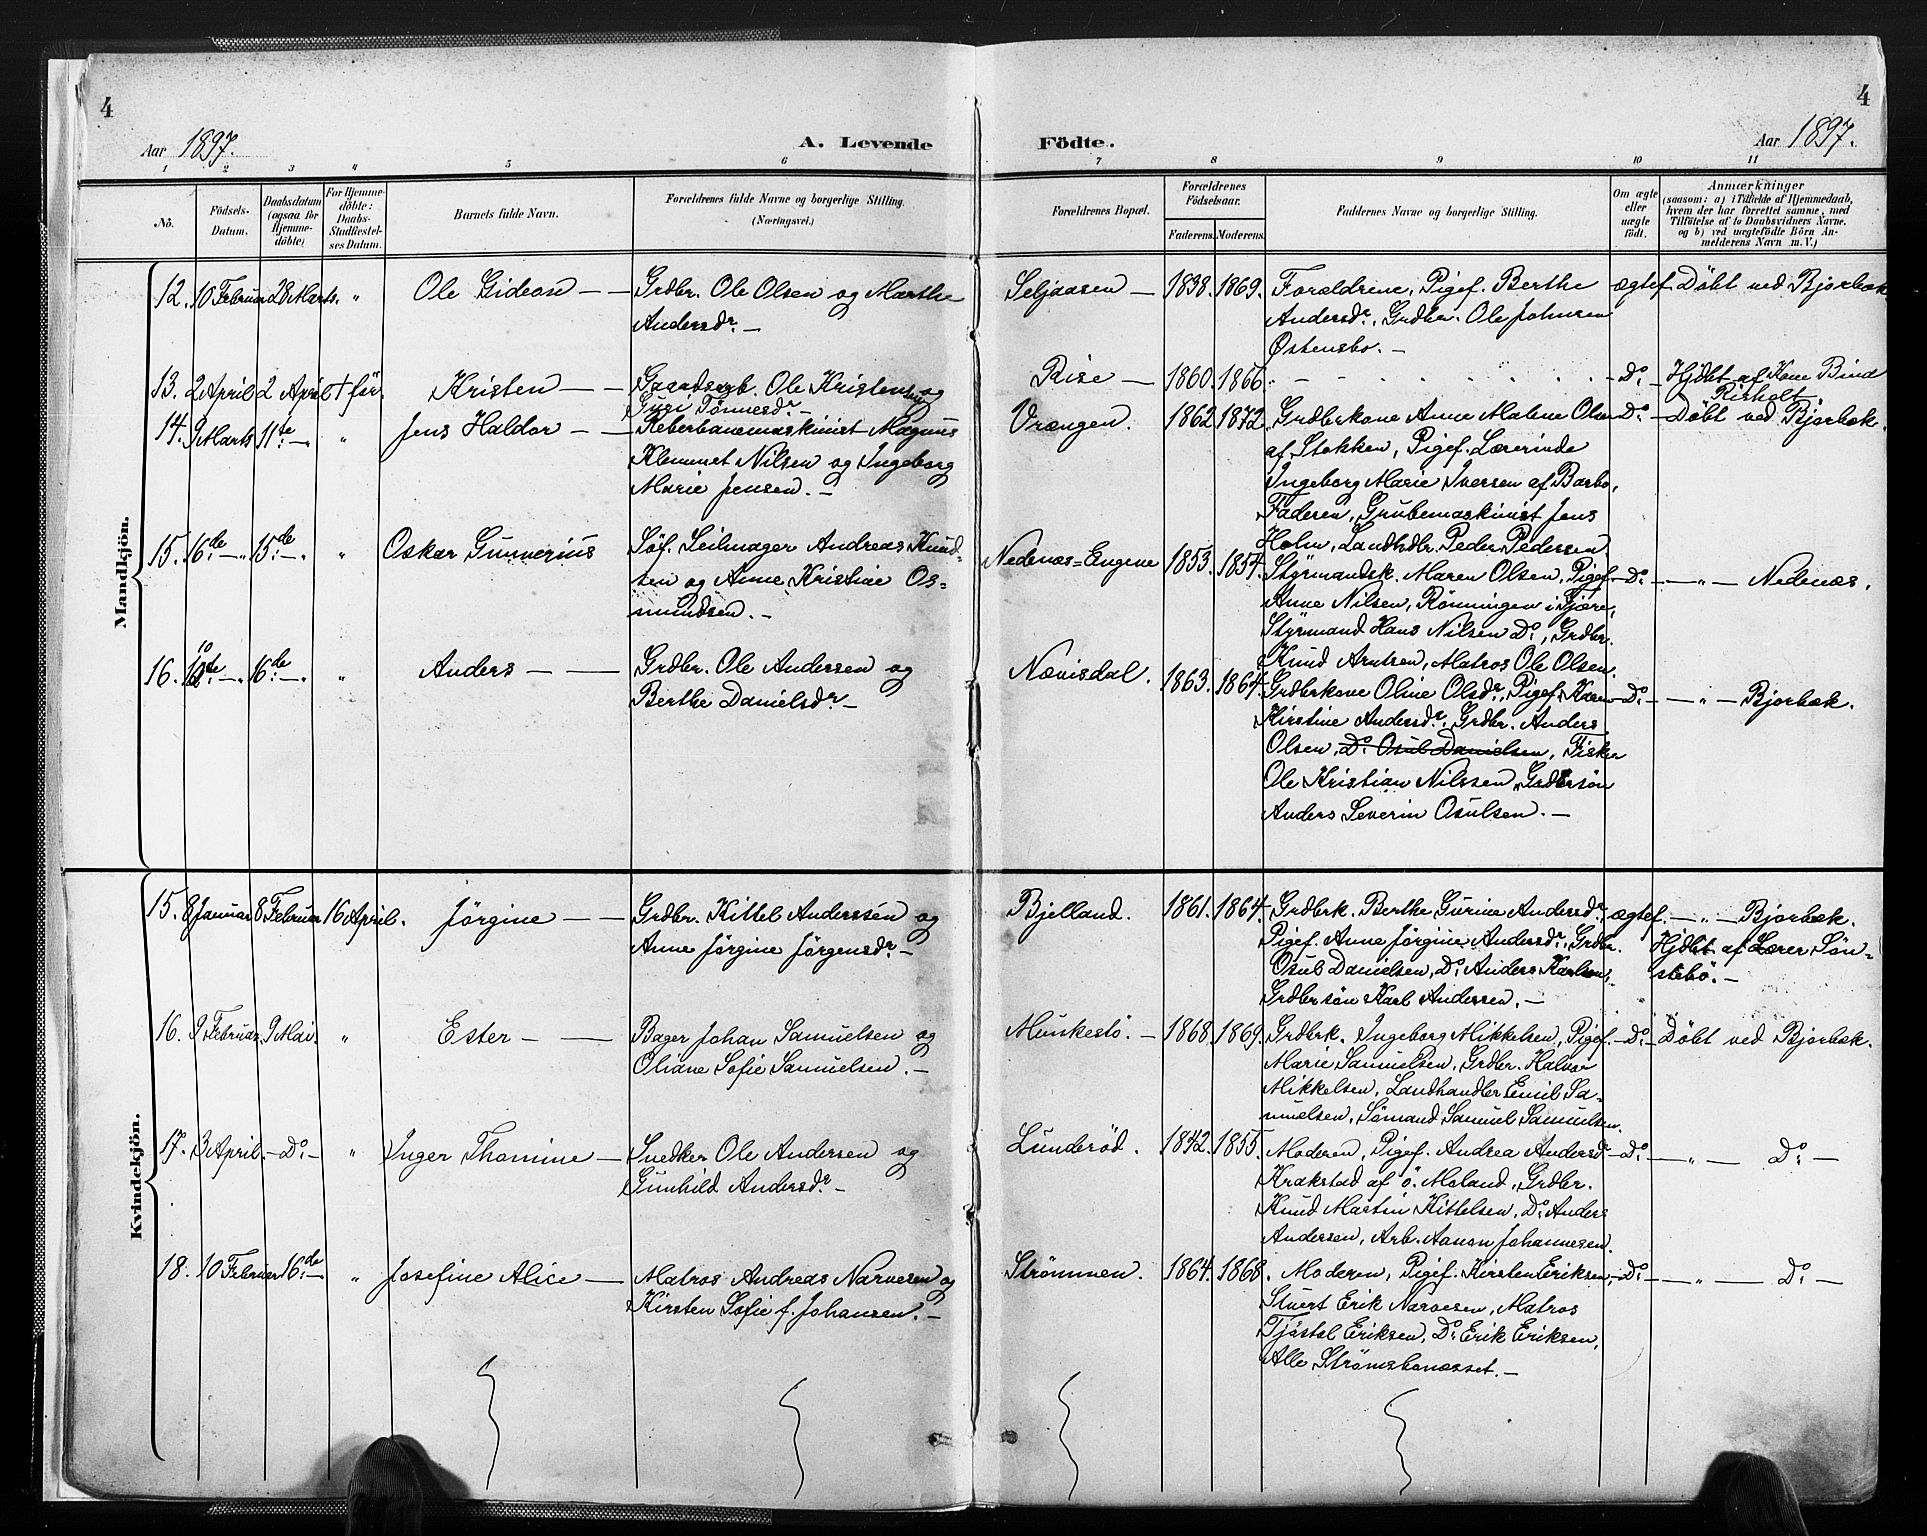 4
4
Aar 1897.
A. Levende
Födte.
Aar 1897.
1 2 3 4 5 6 7 8 9 10 11
No.
Födsels-
Datum.
Daabsdatum
(ogsaa for
Hjemme-
döbte)
For Hjemme-
döbte:
Daabs-
Stadfæstel-
ses Datum.
Barnets fulde Navn.
Forældrenes fulde Navne og borgerlige Stilling.
(Næringsvei.)
Forældrenes Bopæl.
Forældrenes
Födselsaar.
Faderens. Moderens.
Faddernes Navne og borgerlige Stilling.
Om ægte
eller
uægte
födt.
Anmærkninger
(saasom: a) i Tilfælde af Hjemmedaab,
hvem der har forrettet samme, med
Tilföielse af to Daabsvidners Navne.
og b) ved uægtefödte Börn An-
melderens Navn m. V.)
Mandkjön.
12. 10 Februar 28 Marts. " Ole Gideon — — Grdbr. Ole Olsen og Marthe
Andersdr. —
Seljaasen — 1838. 1869. Forældrene, Pigef. Berthe
Andersdr., Grdbr. Ole Johnsen
Østensbo. —
ægtef. Döbt ved Bjorbæk
13. 2 April 2 April + før. Kristen — — Gaardsgb. Ole Kristensen og
Guri Tønnesdr. —
Rise — 1860. 1866. Do. — Hjdbt af Kone Bind
Risholt.
14. 9 Marts 11te — " " Jens Haldor — Reberbanemaskinist Magnus
Klemmet Nilsen og Ingeborg
Marie Jensen. —
Vrængen. 1862. 1872. Grdbrkone Anne Malene Olsen
af Stokken, Pigef. Lærerinde
Ingeborg Marie Iversen af Barbo,
Faderen, Grubemaskinist Jens
Holm, Landhdbr. Peder Pedersen
Do. — Döbt ved Bjorbæk.
15. 16de — " 15de — " " Oskar Gunnerius Söf. Seilmager Andreas Knud-
sen og Anne Kristine Os-
mundsen. —
Nedenæs=Engene 1853. 1854. Styrmandsk. Maren Olsen, Pigef.
Anne Nilsen, Rönningen i Fjære,
Styrmand Hans Nilsen Do., Grdbr.
Knud Arntsen, Matros Ole Olsen.
Do. — — " — Nedenæs.
16. 10te — " 16de — " " Anders — — Grdbr. Ole Andersen og
Berthe Danielsdr. —
Nævisdal. 1863. 1864. Grdbrkone Oline Olsdr., Pigef. Karen
Kirstine Andersdr., Grdbr. Anders
Olsen, Do. Osub Danielsen, Fisker
Ole Kristian Nilssen, Grdbrsön
Anders Severin Osulsen. —
Do. — — " — Bjorbæk.
Kvindekjön.
15. 8 Januar 8 Februar 16 April. Jörgine — — Grdbr. Kittel Anderssen og
Anne Jörgine Jörgensdr. —
Bjelland. 1861. 1864. Grdbrk. Berthe Gurine Andersdr.
Pigef. Anne Jörgine Andersdr., Grdbr.
Osub Danielsen, Do. Anders Karlsen,
Grdbrsön Karl Andersen. —
ægtef. — " — Bjorbæk.
Hjdbt af Lærer Sön-
stebö. —
16. 9 Februar. 9 Mai. " Ester — — Bager Johan Samuelsen og
Oliane Sofie Samuelsen. —
Munkestö. — 1868. 1869. Grdbrk. Ingeborg Mikkelsen, Pigef.
Marie Samuelsen, Grdbr. Halvor
Mikkelsen, Landhandler Emil Sa-
muelsen, Sömand Samuel Samuelsen.
Do. — Döbt ved Bjorbæk.
17. 3 April. — Do. — " Inger Thomine — Snedker Ole Andersen og
Gunhild Andersdr. —
Lunderöd. 1842. 1855. Moderen, Pigef. Andrea Andersdr.
Krakstad af ö. Moland, Grdbr.
Knud Martin Kittelsen, Do. Anders
Andersen, Arb. Aanon Johannesen.
Do. — — " — Do. —
18. 10 Februar 16de — " Josefine Alice — Matros Andreas Narvesen og
Kirsten Sofie f. Johansen. —
Strömmen. 1864. 1868. Moderen, Pigef. Kirsten Eriksen,
Stuert Erik Narvesen, Matros
Tjöstel Eriksen, Do. Erik Eriksen,
Alle Strömsbunæsset. —
Do. — — " — Do. —